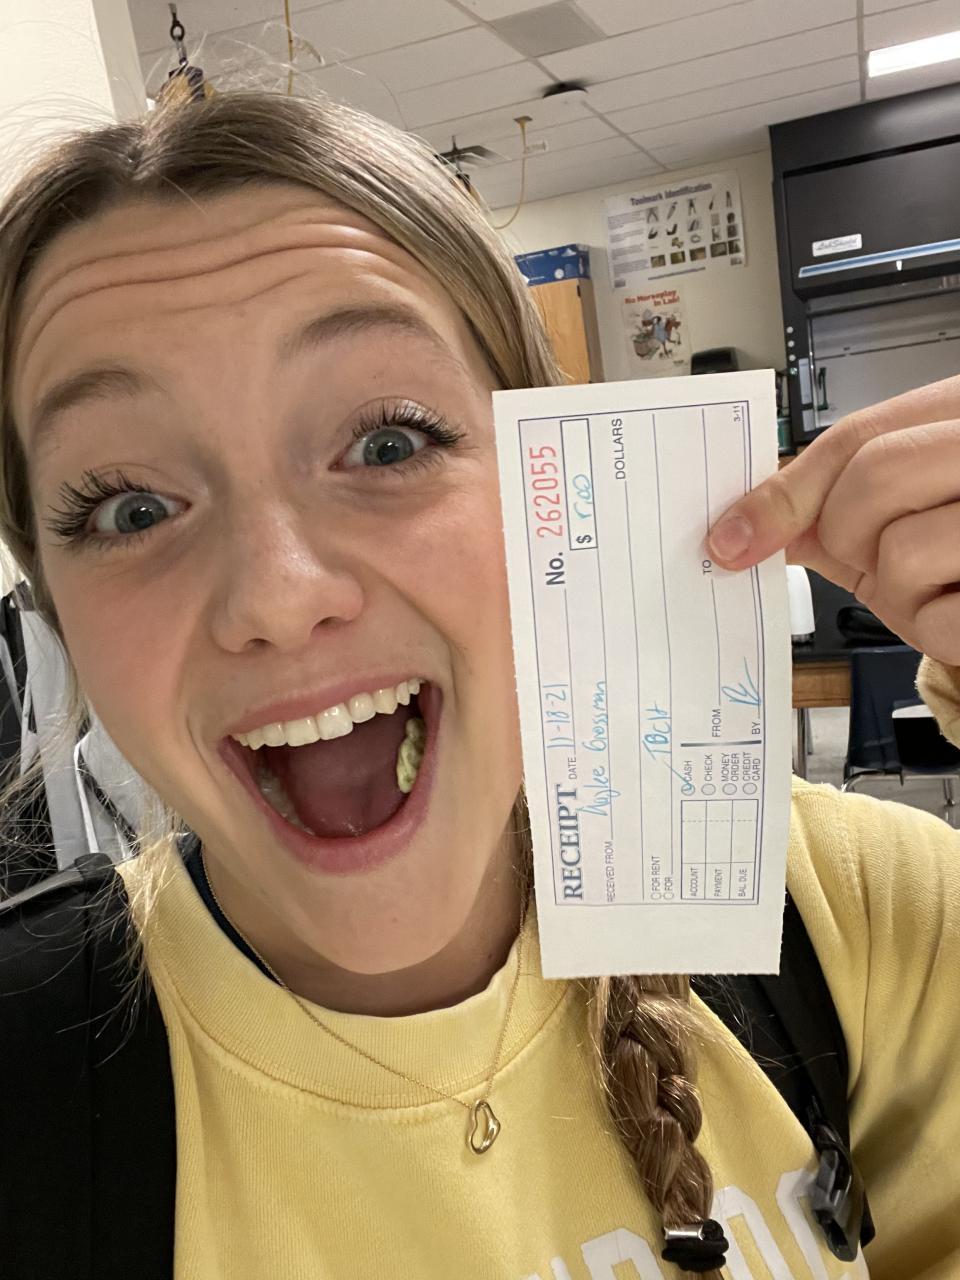 Toolmark Identification
No Horseplay
In Lab!
RECEIPT DATE 11-18-21 No. 262055
RECEIVED FROM Grossman $
DOLLARS
FOR RENT
FOR JBCH
ACCOUNT CASH
PAYMENT CHECK FROM TO
BAL. DUE MONEY ORDER
CREDIT CARD BY
3-11